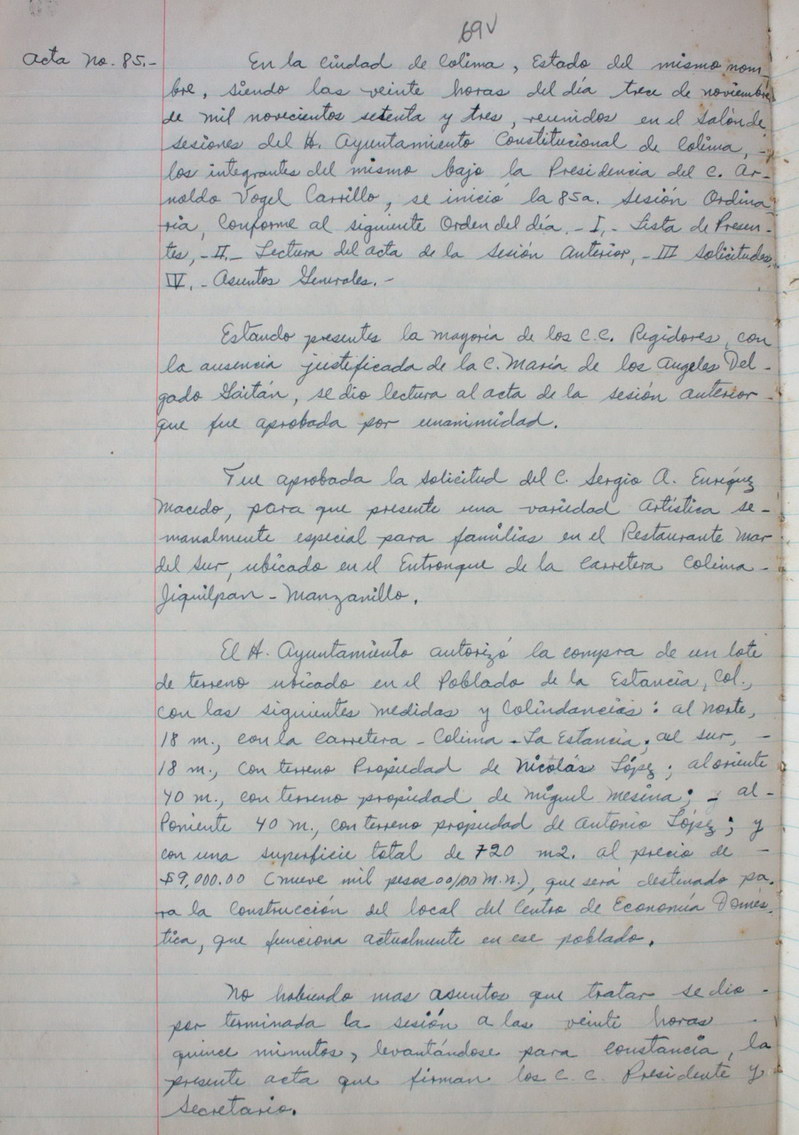 69V
Acta No. 85.-
En la Ciudad de Colima, Estado del mismo nom-
bre, siendo las veinte horas del día trece de noviembre
de mil novecientos setenta y tres, reunidos en el salón de
sesiones del H. Ayuntamiento Constitucional de Colima, -
los integrantes del mismo bajo la Presidencia del C. Ar-
noldo Vogel Carrillo, se inició la 85a. Sesión Ordina-
ria, Conforme al siguiente Orden del día. - I. - Lista de Presen-
tes, - II. - Lectura del acta de la Sesión Anterior, - III Solicitudes,
IV. - Asuntos Generales. -
Estando presentes la mayoría de los C.C. Regidores, con
la ausencia justificada de la C. María de los Angeles Del-
gado Gaitán, se dio lectura al acta de la sesión anterior -
que fue aprobada por unanimidad.
Fue aprobada la solicitud del C. Sergio A. Enríquez
Macedo, para que presente una variedad Artística se-
manalmente especial para familias en el Restaurante Mar
del Sur, ubicado en el Entronque de la Carretera Colima -
Jiquilpan - Manzanillo.
El H. Ayuntamiento autorizó la compra de un lote
de terreno ubicado en el Poblado de la Estancia, Col.,
con las siguientes medidas y Colindancias: al norte,
18 m., con la Carretera - Colima - La Estancia; al sur, -
18 m., con terreno Propiedad de Nicolás López; al oriente
40 m., con terreno propiedad de Miguel Mesina; - al -
Poniente 40 m., con terreno propiedad de Antonio López; y
con una superficie total de 720 m2. al precio de -
$9,000.00 (nueve mil pesos 00/00 M.N.), que será destinado pa-
ra la Construcción del local del Centro de Economía Domés-
tica, que funciona actualmente en ese poblado.
No habiendo mas asuntos que tratar se dio -
por terminada la sesión a las veinte horas -
quince minutos, levantándose para constancia, la
presente acta que firman los C. C. Presidente y
Secretario.